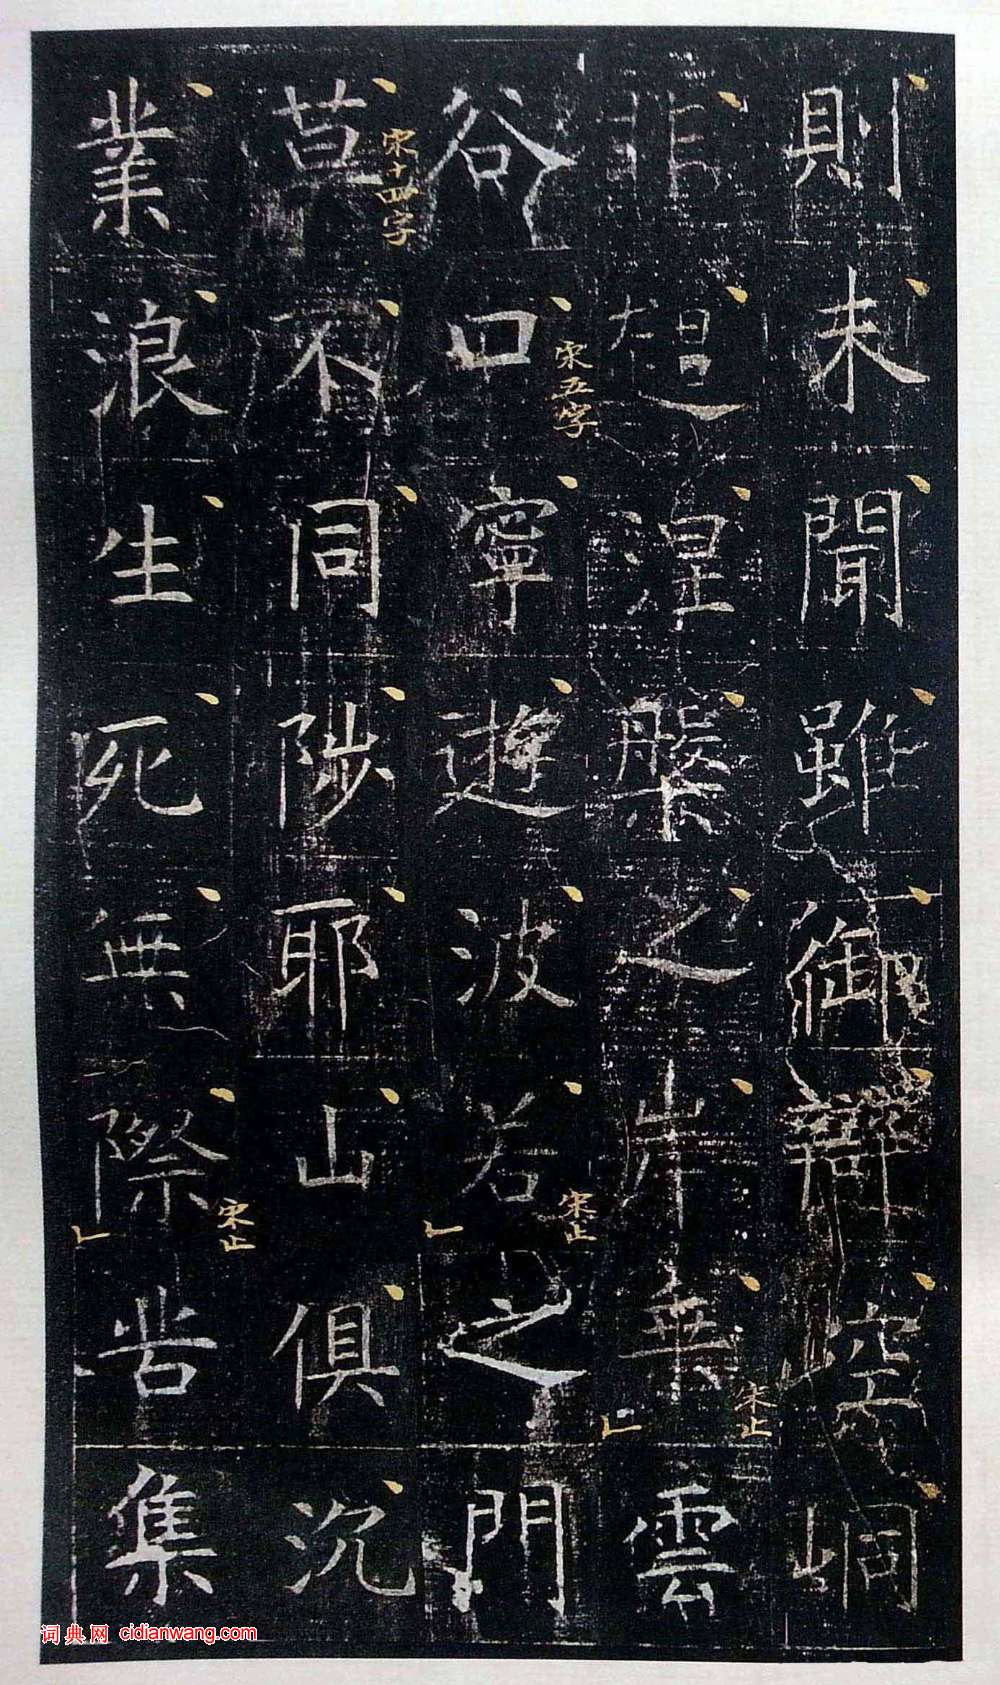 則未聞雖御辯空峒
非超涅槃之岸乘雲
宋止
谷口寧遊波若之門
宋五字
宋止
莫不同陟耶山俱沉
宋十四字
業浪生死無際苦集
宋止
词典网 cidianwang.com